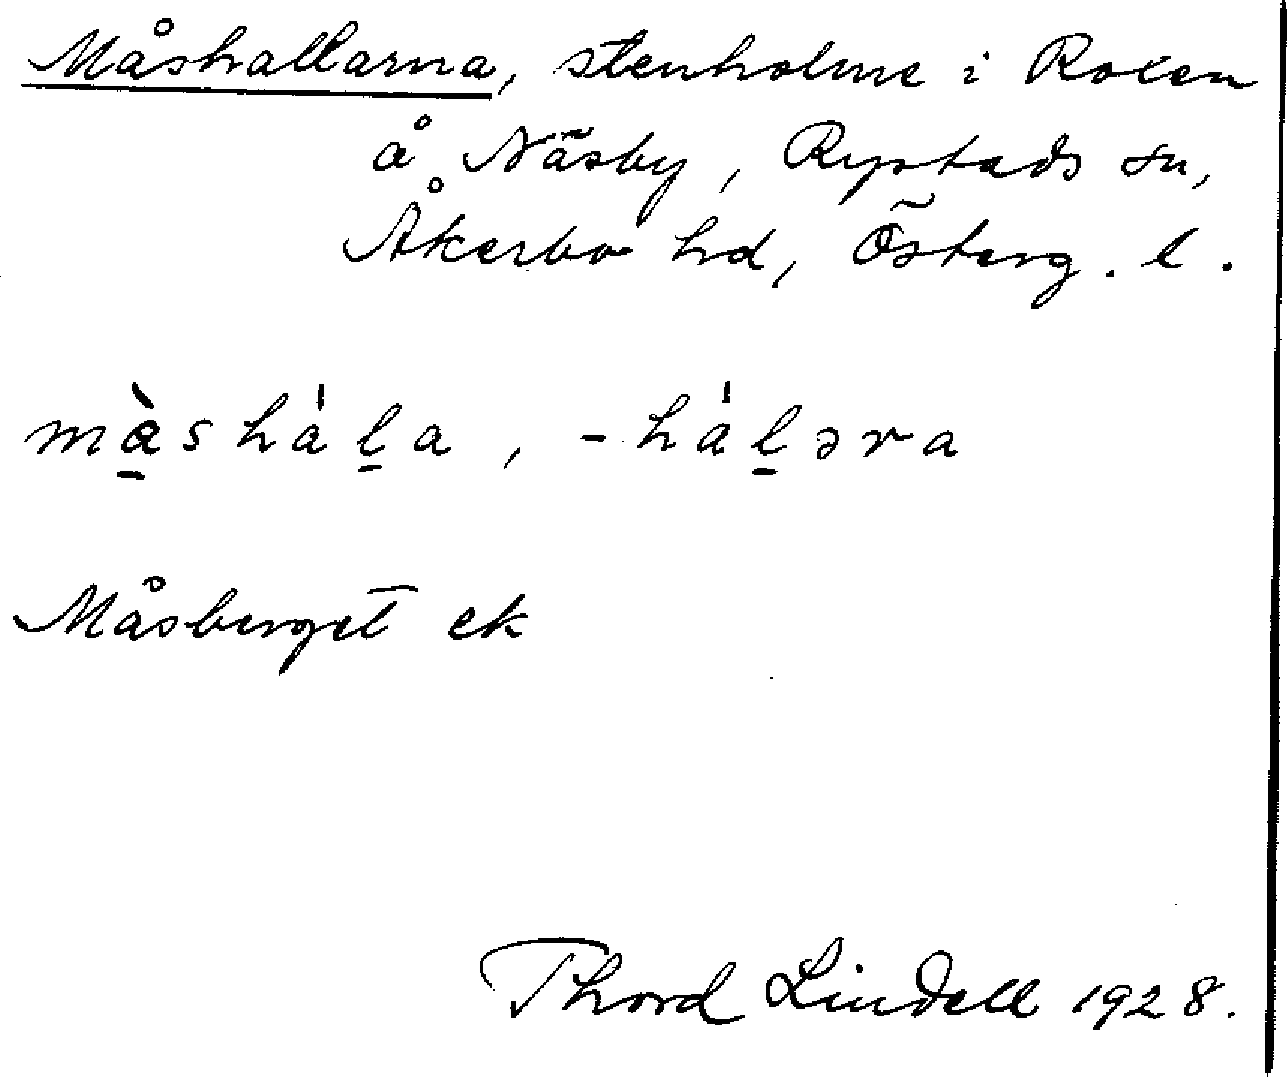 Måshallarna, stenholme i Roxen
å Näsby, Rystads sn,
Åkerbo hd, Österg. l.
mà̱shá̍ḻa, -há̍ḻəra
Måsberget ek
Thord Lindell 1928.